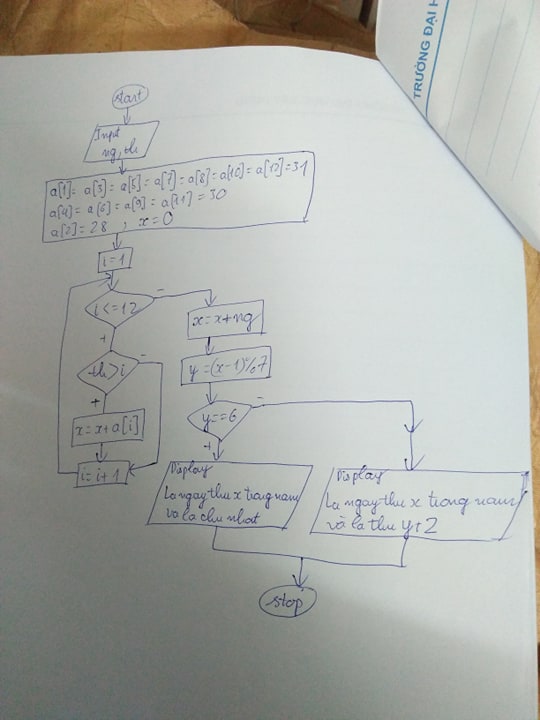 TRƯỜNG ĐẠI H
start
Input
ng, th
a[1]= a[3]= a[5]= a[7]= a[8]= a[10]= a[12]=31
a[4]= a[6]= a[9]= a[11]=30
a[2]=28 , x=0
i=1
i<=12
-
+
x=x+ng
th>i
-
+
y=(x-1)%7
x=x+a[i]
y==6
-
+
i=i+1
Display
La ngay thu x trong nam
va la chu nhat
Display
La ngay thu x trong nam
và la thu y+2
stop